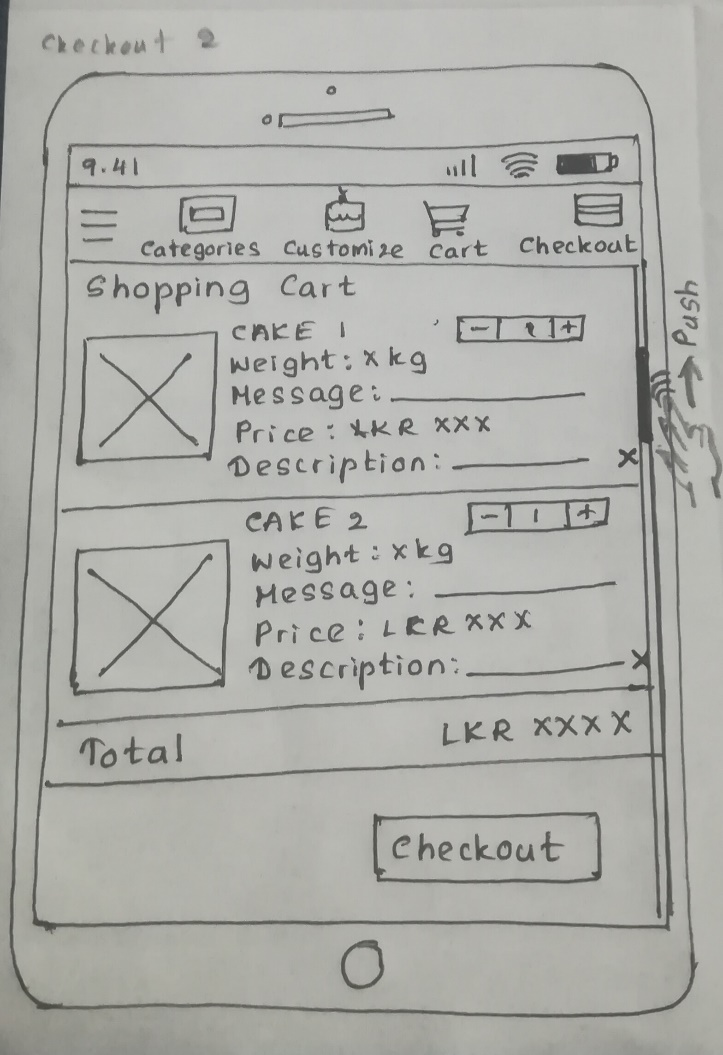 Checkout 2
9.41
Categories Customize Cart Checkout
Shopping Cart
CAKE 1 - 1 +
Weight: x kg
Message:
Price: LKR XXX
Description: x
CAKE 2 - 1 +
Weight: x kg
Message:
Price: LKR XXX
Description: x
Total LKR XXXX
Checkout
Push